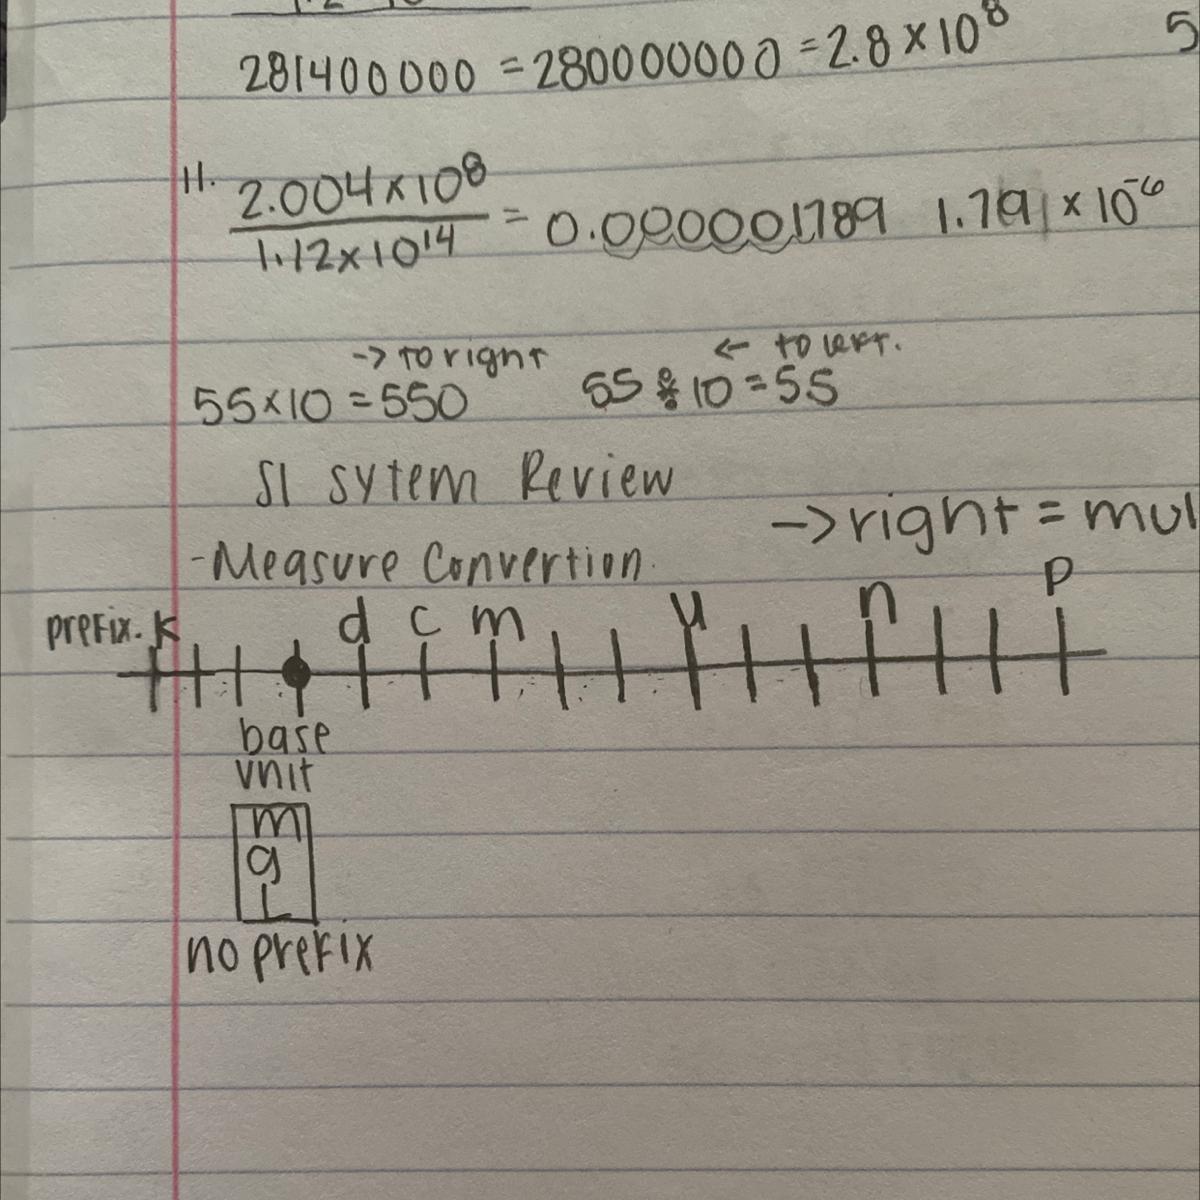 281400000 = 280000000 = 2.8 × 10⁸ 5
11. 2.004 × 10⁸
1.12 × 10¹⁴
= 0.000001789 1.791 × 10⁻⁶
-> to right <- to left.
55 × 10 = 550 55 ÷ 10 = 55
SI sytem Review
-> right = mul
- Measure Convertion
prefix. K d c m u n p
base
unit
m
g
L
no prefix